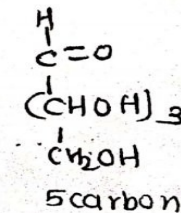 H
C=O
(CHOH)3
CH2OH
5carbon